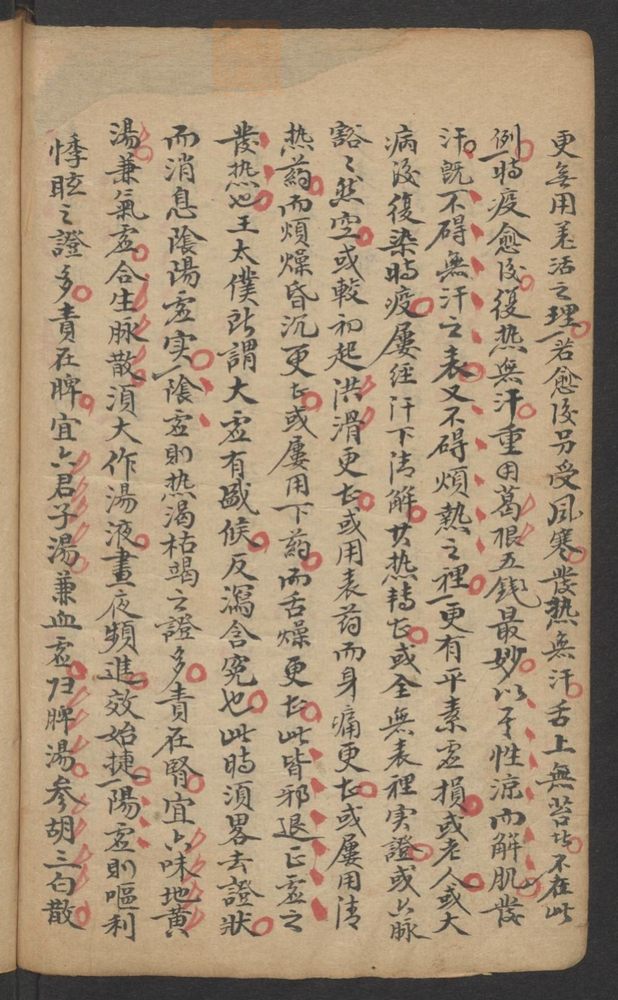 更無用羌活之理若愈後另受風寒發熱無汗舌上無苔者不在此
例一時疫愈後復热無汗重用葛根五錢最妙以其性涼而解肌發
汗既不碍無汗之表又不碍煩熱之裡一更有平素虛損或老人或大
病後復染時疫屢经汗下清解其热轉甚或全無表裡实證或六脉
豁々然空或較初起洪滑更甚或用表药而身痛更甚或屢用清
热药而煩燥昏沉更甚或屢用下药而舌燥更甚此皆邪退正虛之
發热也王太僕所謂大虛有盛候反瀉含寃也此時須畧去證狀
而消息陰陽虛实一陰虛則热渴枯竭之證多責在腎宜六味地黄
湯兼氣虛合生脉散須大作湯液晝夜頻進效始捷一陽虛則嘔利
悸眩之證多責在脾宜六君子湯兼血虛归脾湯参胡三白散